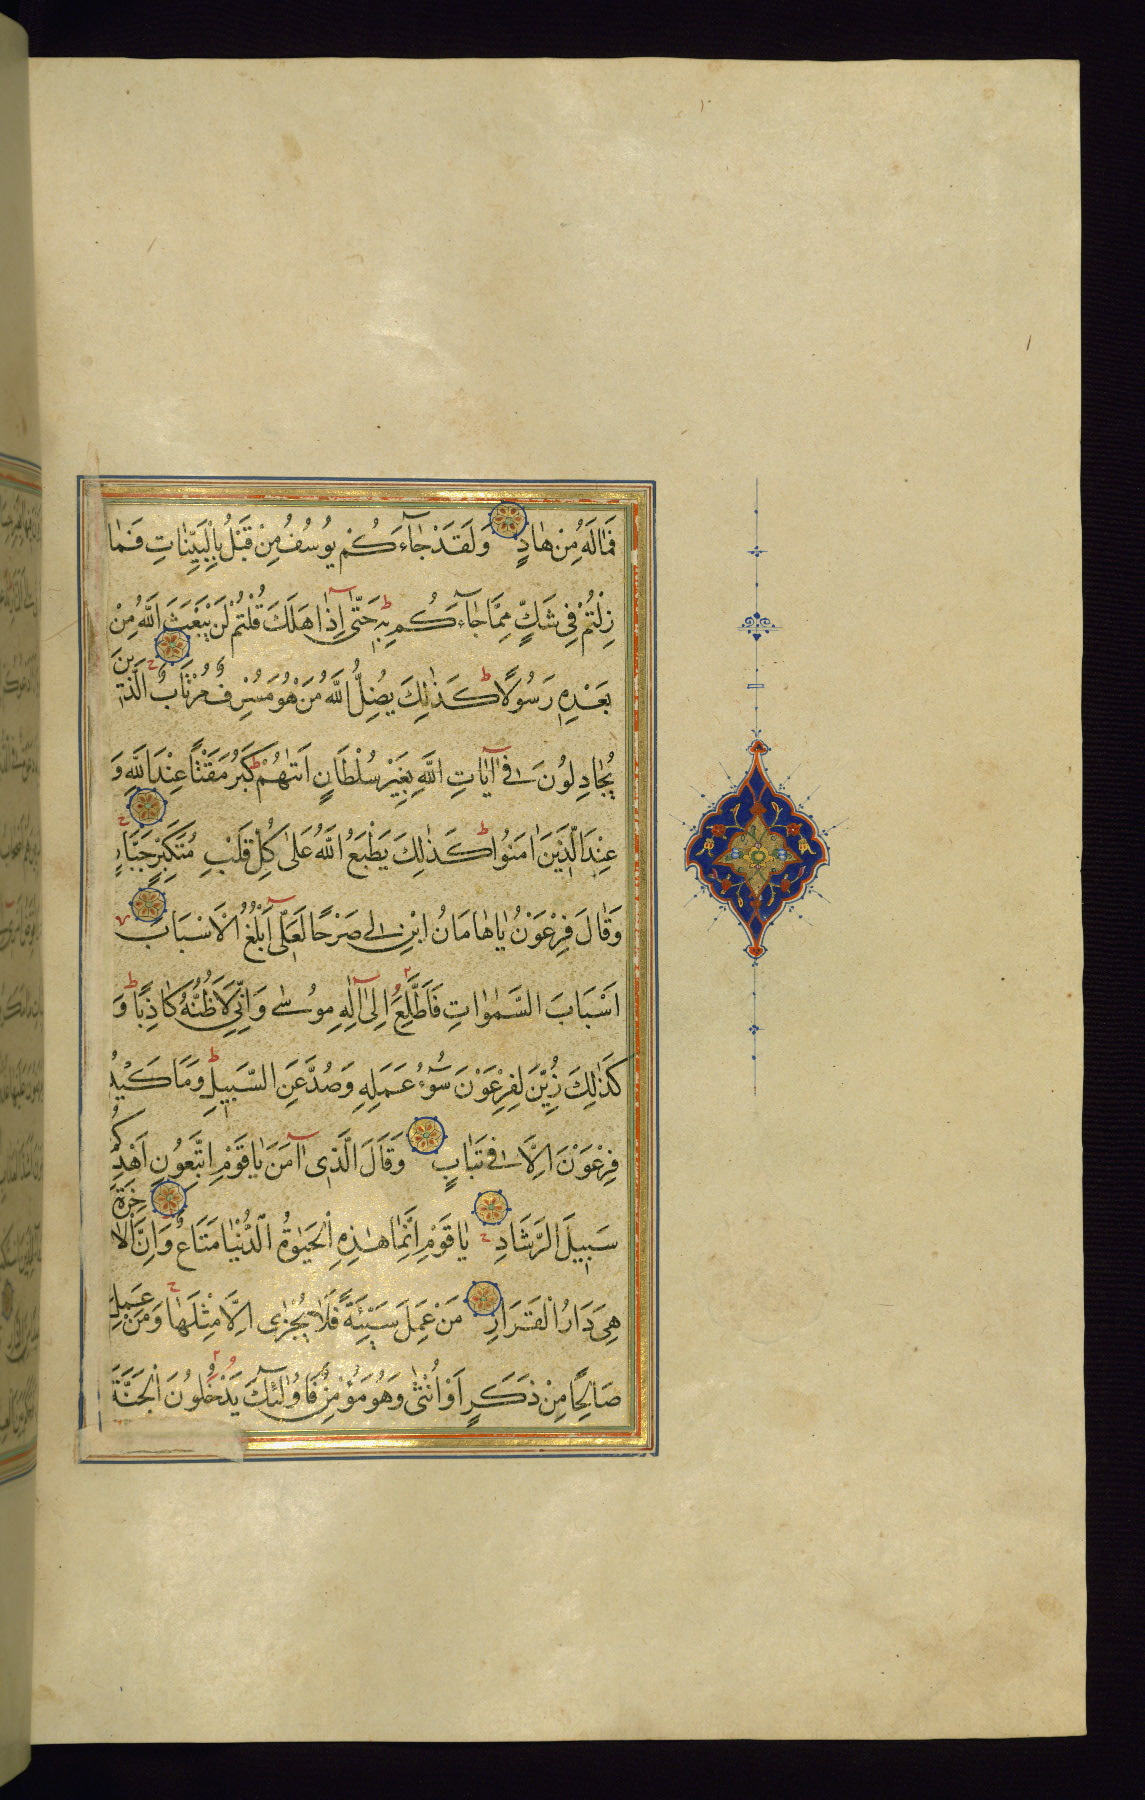 فَمَالَهُ مِنْ هَادٍ وَلَقَدْ جَاءَكُمْ يُوسُفُ مِنْ قَبْلُ بِالْبَيِّنَاتِ فَمَا
زِلْتُمْ فِي شَكٍّ مِمَّا جَاءَكُمْ بِهِ حَتَّى إِذَا هَلَكَ قُلْتُمْ لَنْ يَبْعَثَ اللَّهُ مِنْ
بَعْدِهِ رَسُولًا كَذَٰلِكَ يُضِلُّ اللَّهُ مَنْ هُوَ مُسْرِفٌ مُرْتَابٌ الَّذِينَ
يُجَادِلُونَ فِي آيَاتِ اللَّهِ بِغَيْرِ سُلْطَانٍ أَتَٰهُمْ كَبُرَ مَقْتًا عِنْدَ اللَّهِ وَ
عِنْدَ الَّذِينَ اٰمَنُوا كَذَٰلِكَ يَطْبَعُ اللَّهُ عَلَىٰ كُلِّ قَلْبِ مُتَكَبِّرٍ جَبَّارٍ
وَقَالَ فِرْعَوْنُ يَا هَامَانُ ابْنِ لِي صَرْحًا لَعَلِّي أَبْلُغُ الْاَسْبَابَ
اَسْبَابَ السَّمٰوَاتِ فَاَطَّلِعَ اِلَىٰ اِلٰهِ مُوسٰى وَاِنِّي لَاَظُنُّهُ كَاذِبًا وَ
كَذَٰلِكَ زُيِّنَ لِفِرْعَوْنَ سُوءُ عَمَلِهِ وَصُدَّ عَنِ السَّبِيلِ وَمَا كَيْدُ
فِرْعَوْنَ اِلَّا فِي تَبَابٍ وَقَالَ الَّذِي اٰمَنَ يَا قَوْمِ اتَّبِعُونِ اَهْدِكُمْ
سَبِيلَ الرَّشَادِ يَا قَوْمِ اِنَّمَا هٰذِهِ الْحَيٰوةُ الدُّنْيَا مَتَاعٌ وَاِنَّ الْاٰخِرَةَ
هِيَ دَارُ الْقَرَارِ مَنْ عَمِلَ سَيِّئَةً فَلَا يُجْزٰى اِلَّا مِثْلَهَا وَمَنْ عَمِلَ
صَالِحًا مِنْ ذَكَرٍ اَوْ اُنْثٰى وَهُوَ مُؤْمِنٌ فَاُولٰئِكَ يَدْخُلُونَ الْجَنَّةَ